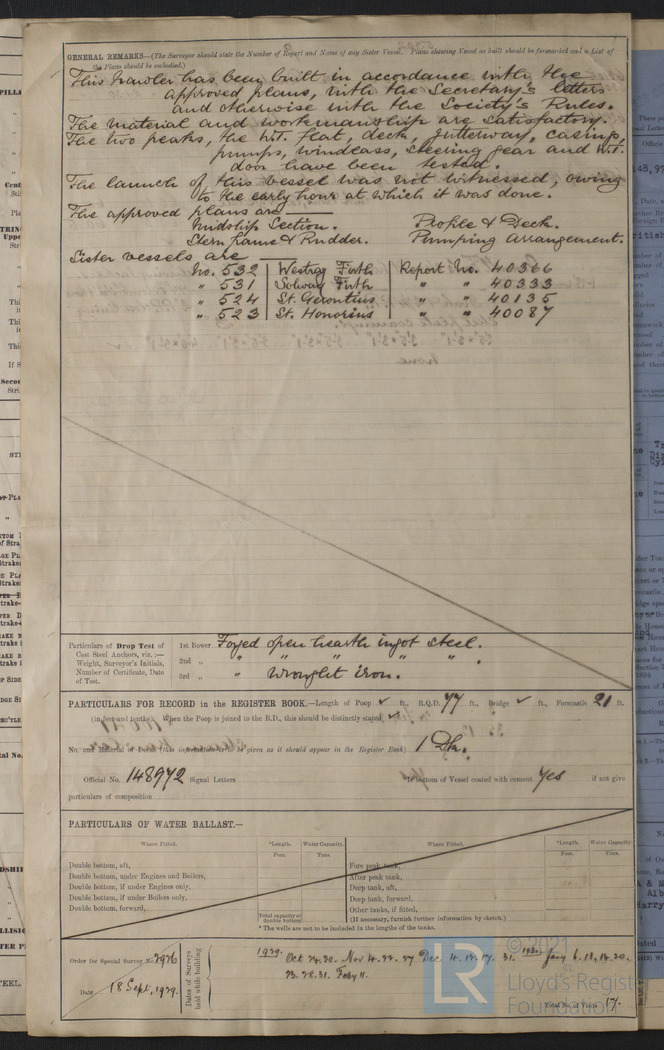 GENERAL REMARKS—(The Surveyor should state the Number of Report and Name of any Sister Vessel. Plans showing Vessel as built should be forwarded and a List of
the Plans should be embodied.)
This trawler has been built in accordance with the
approved plans, with the Secretary's letters
and otherwise with the Society's Rules.
The material and workmanship are satisfactory.
The two peaks, the W.T. flat, deck, gutterway, casing,
pumps, windlass, steering gear and W.T.
door have been tested.
The launch of this vessel was not witnessed, owing
to the early hour at which it was done.
The approved plans are —
Midship Section. Profile & Deck.
Stern frame & Rudder. Pumping Arrangement.
Sister vessels are —
No. 532 Westray Firth Report No. 40366
" 531 Solway Firth " " 40333
" 524 St. Gerontius " " 40135
" 523 St. Honorius " " 40087
Particulars of Drop Test of
Cast Steel Anchors, viz. :—
Weight, Surveyor's Initials,
Number of Certificate, Date
of Test.
1st Bower Forged open hearth ingot steel.
2nd " " " " " " .
3rd " " Wrought iron.
PARTICULARS FOR RECORD in the REGISTER BOOK.—Length of Poop ✓ ft., R.Q.D. 77 ft., Bridge ✓ ft., Forecastle 21 ft.
(in feet and tenths). When the Poop is joined to the B.D., this should be distinctly stated ✓
No. and Material of Decks (this information to be given as it should appear in the Register Book) 1 Dk.
Official No. 148972 Signal Letters Is bottom of Vessel coated with cement Yes if not give
particulars of composition
PARTICULARS OF WATER BALLAST.—
Where Fitted. *Length. Water Capacity. Where Fitted. *Length. Water Capacity
Feet. Tons. Feet. Tons.
Double bottom, aft, Fore peak tank,
Double bottom, under Engines and Boilers, After peak tank,
Double bottom, if under Engines only, Deep tank, aft,
Double bottom, if under Boilers only, Deep tank, forward,
Double bottom, forward, Other tanks, if fitted,
Total capacity of double bottom (If necessary, furnish further information by sketch.)
* The wells are not to be included in the lengths of the tanks.
Order for Special Survey No. 3976
Date 18 Sept, 1929.
Dates of Surveys held while building
1929. Oct 24.30. Nov 4. 22. 27 Dec 4. 12. 17. 31. 1930. Jany 6. 13, 14. 20.
23. 28. 31. Feby 11.
Total No. of Visits 17.
LR
© 2021
Lloyd's Register
Foundation